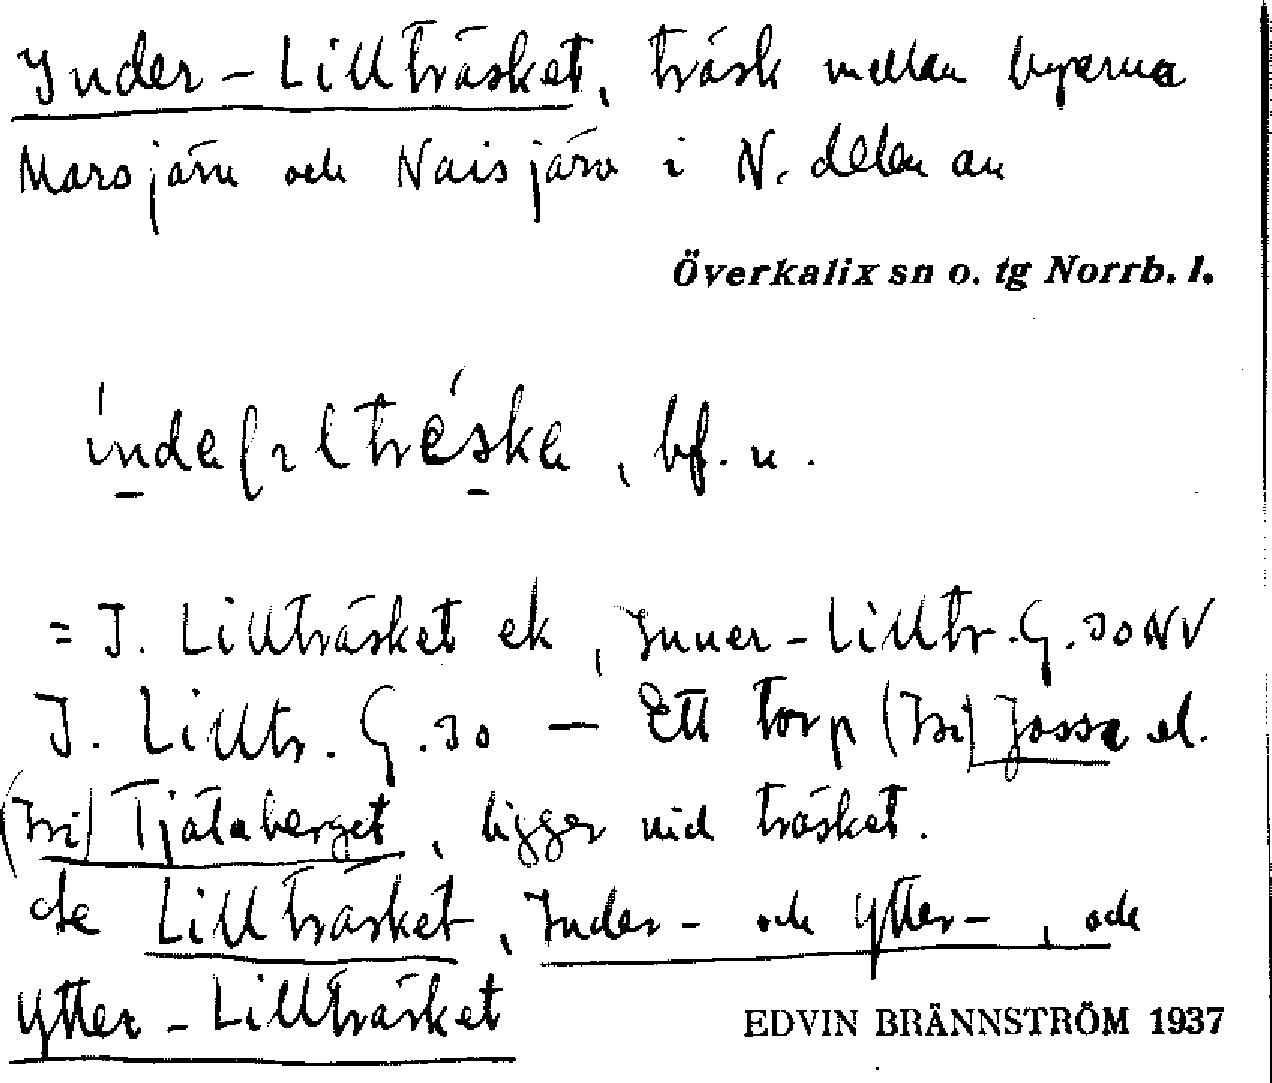 Inder-Lillträsket, träsk mellan byarna
Marsjärv och Naisjärv i N. delen av
Överkalix sn o. tg Norrb. l.
bf. n.
= I. Lillträsket ek, Inner-Lilltr. G. 30 NV
I. Lilltr. G. 30 — Ett torp (Isi) Jossa el.
(Isi) Tjåtaberget, ligger vid träsket.
se Lillträsket, Inder- och Ytter-, och
Ytter-Lillträsket
EDVIN BRÄNNSTRÖM 1937